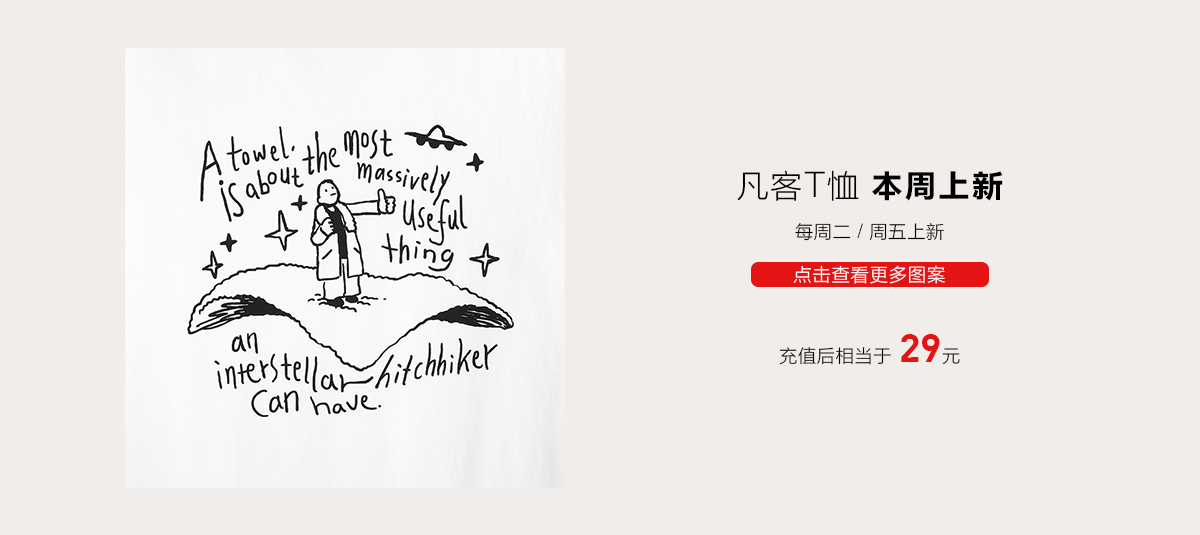 A towel.
is about the most
massively
useful
thing
an
interstellar hitchhiker
can have.
凡客T恤 本周上新
每周二 / 周五上新
点击查看更多图案
充值后相当于 29元